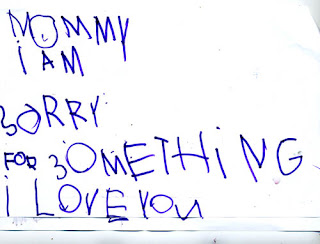 MOMMY
i AM
SORRY
FOR SOMETHiNG
i LOVE YOU